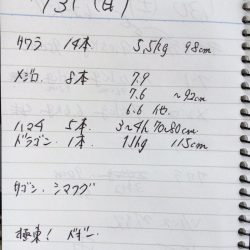 7/31 (日)
サワラ 14本 5.5kg 98cm
メジロ 8本 7.9
7.6 ~92cm
6.6 他.
ハマチ 5本. 3~4h 70~80cm
ドラゴン. 1本. 1.1kg 115cm
タゴン. シマフグ
極東! ボギー.